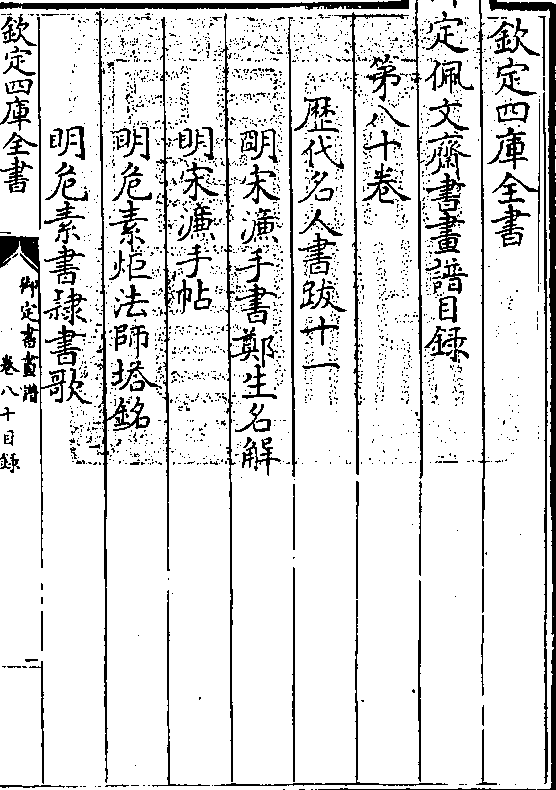 欽定四庫全書
定佩文齋書畫譜目録
第八十卷
歴代名人書跋十一
明宋濂手書鄭生名解
明宋濂手帖
明危素炬法師塔銘
明危素書隸書歌
欽定四庫全書
御定書畫譜
卷八十目録
一